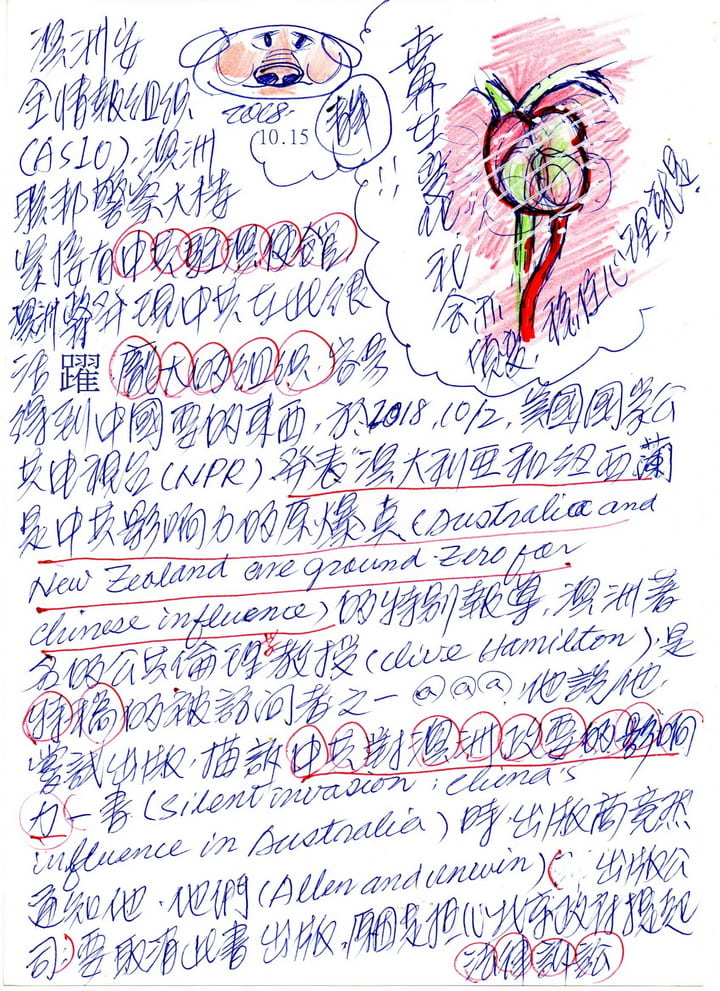 澳洲安
全情報組织
(ASIO), 澳洲
联邦警察大楼
緊接有中共駐澳使館
澳洲發現中共在此很
活躍龐大的组织,
得到中國要的東西, 於2018,10/2, 美國國家公
共电視台(NPR)發表澳大利亚和纽西蘭
是中共影响力的原爆真(Australia and
New Zealand are ground-zero for
Chinese influence)的特别報導, 澳洲著
名的公共倫理学教授(Clive Hamilton)是
特稿的被訪问者之一 @@@, 他說他
嘗試出版, 描訴中共對澳洲政要的影响
力一書(Silent invasion: China's
influence in Australia)時, 出版商竟然
通知他, 他們(Allen and unwin)(出版公
司)要取消此書出版, 原因是担心北京政府提起
法律訴訟
2018.
10.15
!!